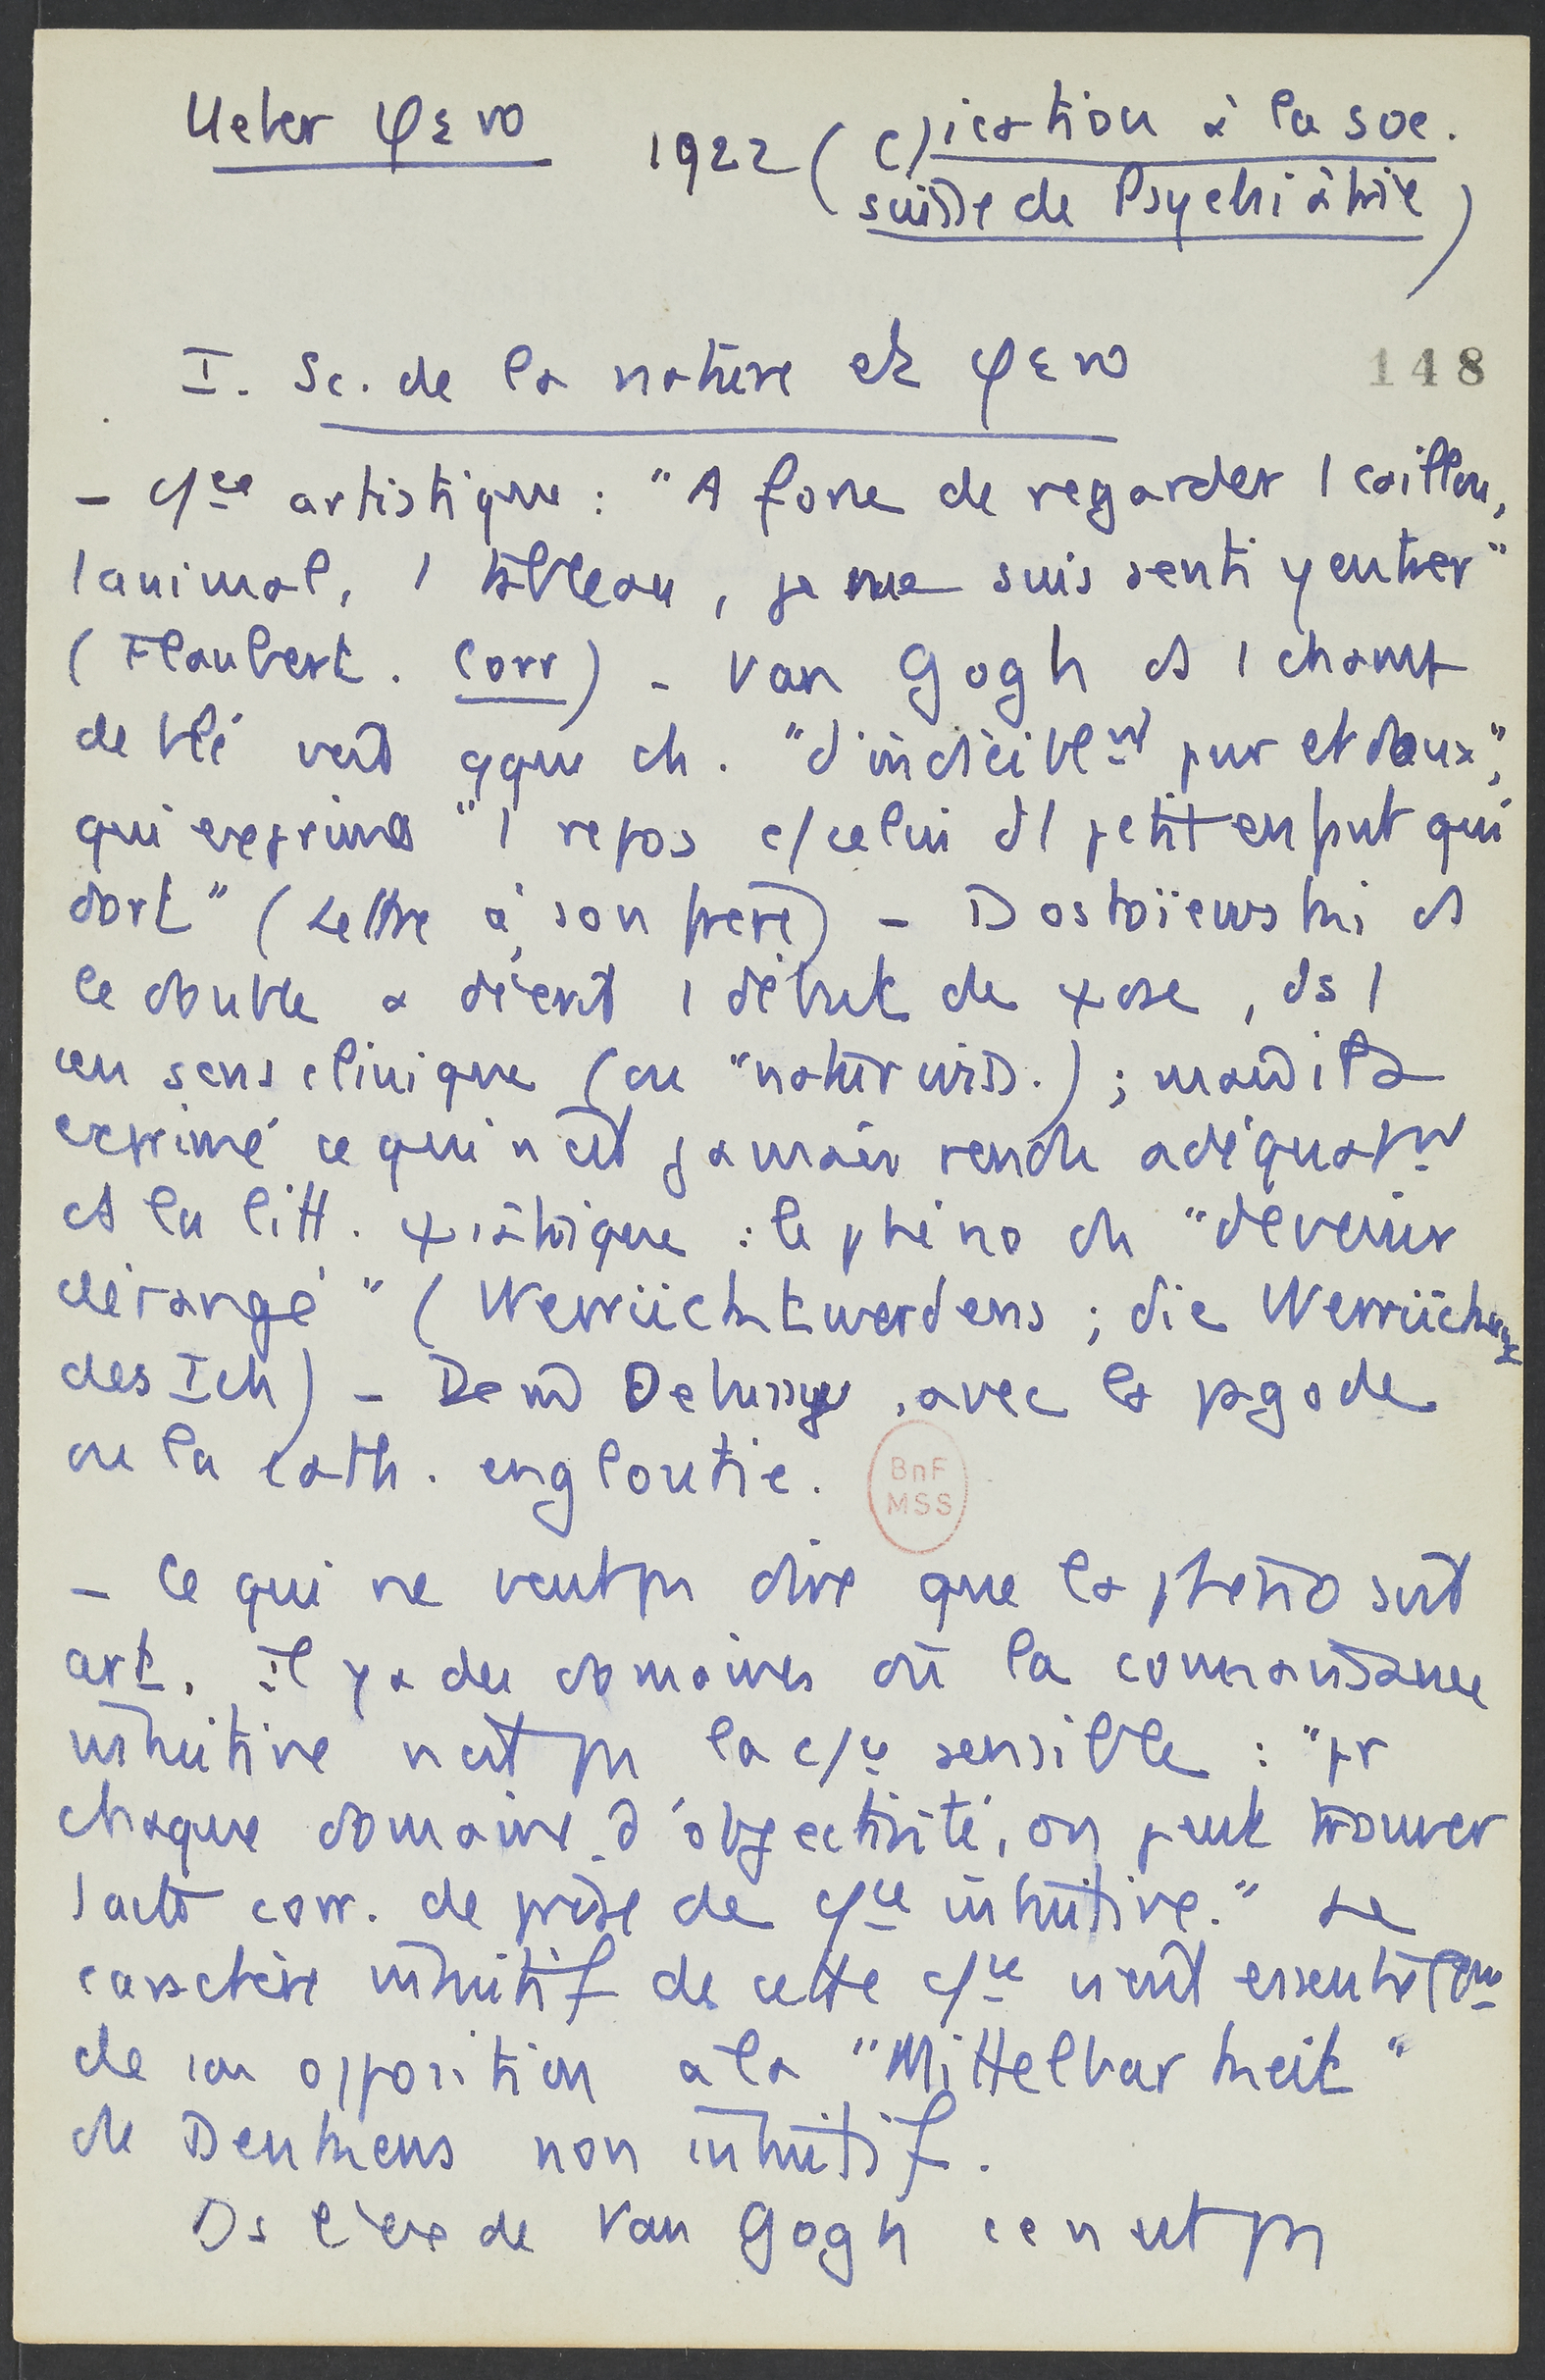 Ueber φενο 1922 ( c/ication à la soc.
suisse de Psychiatrie )
I. Sc. de la nature et φενο
148
– c/ce artistique : "A force de regarder 1 caillou,
1 animal, 1 tableau, je me suis senti y entrer"
(Flaubert. Corr) – Van Gogh ds 1 champ
de blé vert qque ch. "d'indiciblemt pur et doux",
qui exprime "1 repos c/celui d'1 petit enfant qui
dort" (Lettre à son frère) – Dostoïewski ds
le double a décrit 1 début de ψose, ds 1
cen sens clinique (ou "naturwiss.) ; mais il a
exprimé ce qui n'est jamais rendu adéquatemt
ds la litt. ψiatrique : le phéno du "devenir
dérangé" (Werrücktwerdens ; die Werrückung
des Ich) – De m̂ Debussy, avec la pagode
ou la cath. engloutie.
BnF
MSS
– Ce qui ne veut pas dire que la phéno soit
art. Il y a des domaines où la connaissance
intuitive n'est pas la c/ce sensible : "pr
chaque domaine d'objectivité, on peut trouver
l'acte corr. de prise de c/ce intuitive." Le
caractère intuitif de cette c/ce vient essentiellemt
de son opposition à la "Mittelbarkeit"
du Denkens non intuitif.
Ds l'ex de Van Gogh ce n'est pas